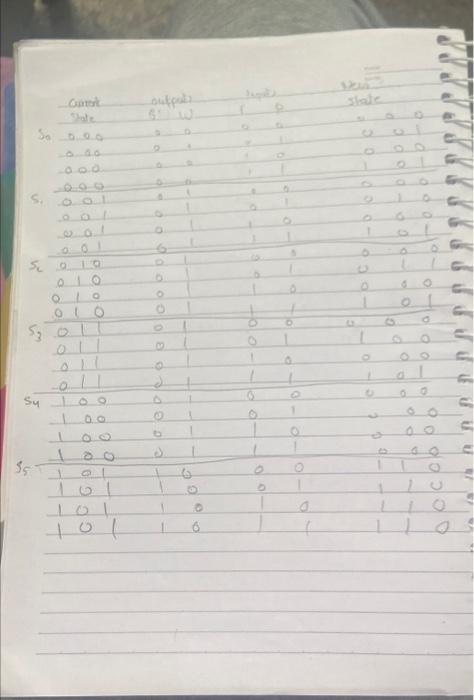 Current outputs New
State S' W state
S0 0 0 0 0 0 0 0 0
0 0 0 0 1 0 1 0 0 1
0 0 0 0 1 0 0 0 0
0 0 0 0 1 1 1 1 0 1
S1 0 0 1 0 1 0 0 0 0 0
0 0 1 0 1 0 1 0 1 0
0 0 1 0 1 1 0 0 0 0
0 0 1 0 1 1 1 1 0 1
S2 0 1 0 0 1 0 0 0 0 0
0 1 0 0 1 0 1 0 1 1
0 1 0 0 1 1 0 0 0 0
0 1 0 0 1 1 1 1 0 1
S3 0 1 1 0 1 0 0 0 0 0
0 1 1 0 1 0 1 1 0 0
0 1 1 0 1 1 0 0 0 0
0 1 1 0 1 1 1 1 0 1
S4 1 0 0 0 1 0 0 0 0 0
1 0 0 0 1 0 1 0 0 0
1 0 0 0 1 1 0 0 0 0
1 0 0 0 1 1 1 0 0 0
S5 1 0 1 1 0 0 0 1 1 0
1 0 1 1 0 0 1 1 1 0
1 0 1 1 0 1 0 1 1 0
1 0 1 1 0 1 1 1 1 0